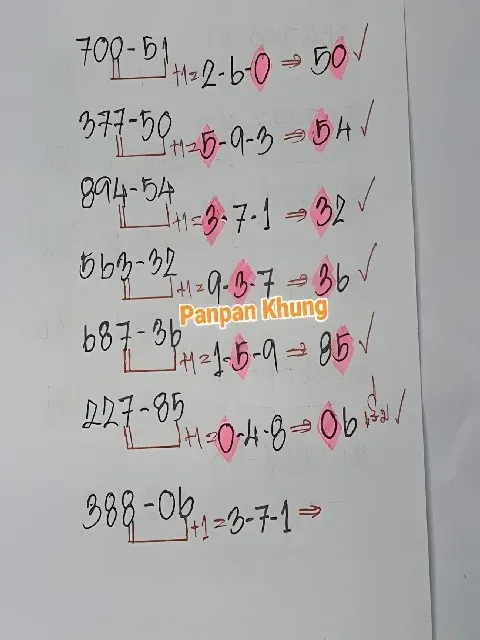 700-51 +1=2-6-0 ⇒ 50 ✓
377-50 +1=5-9-3 ⇒ 54 ✓
894-54 +1=3-7-1 ⇒ 32 ✓
563-32 +1=9-3-7 ⇒ 36 ✓
Panpan Khung
687-36 +1=1-5-9 ⇒ 85 ✓
227-85 +1=0-4-8 ⇒ 06 ✓
388-06 +1=3-7-1 ⇒